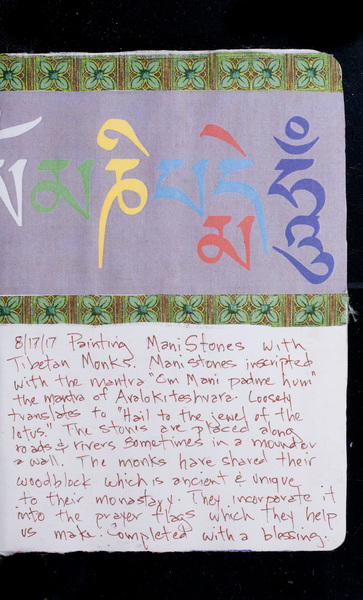 ཨོཾ མ ཎི པ དྨེ ཧཱུྃ
8/17/17 Painting Mani Stones with
Tibetan Monks. Mani stones inscripted
with the mantra "Om Mani padme hum"
the mantra of Avalokiteshvara. Loosely
translates to "Hail to the jewel of the
lotus." The stones are placed along
roads & rivers sometimes in a mound or
a wall. The monks have shared their
woodblock which is ancient & unique
to their monastary. They incorporate it
into the prayer flags which they help
us make. Completed with a blessing.